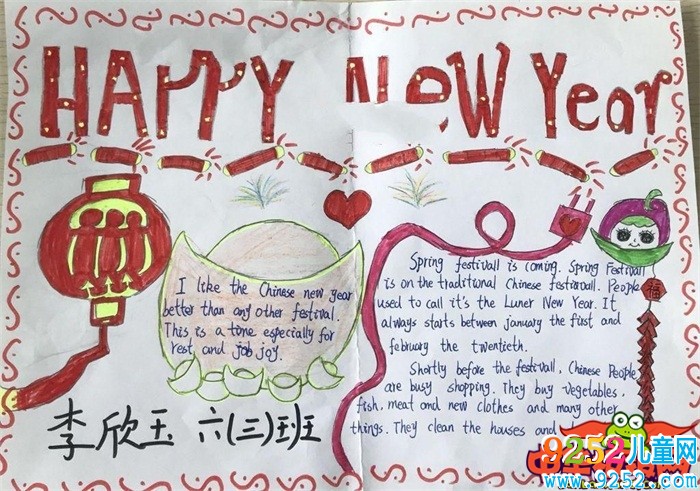 HAPPY New Year
I like the Chinese new year
better than any other festival.
This is a tone especially for
rest, and job joy.
Spring festivall is coming. Spring Festivall
is on the traditional Chinese festivall. People
used to call it's the Luner New Year. It
always starts between january the first and
february the twentieth.
Shortly before the festivall, Chinese People
are busy shopping. They buy vegetables,
fish, meat and new clothes and many other
things. They clean the houses and
福
李欣玉 六(三)班
9252儿童网
www.9252.com